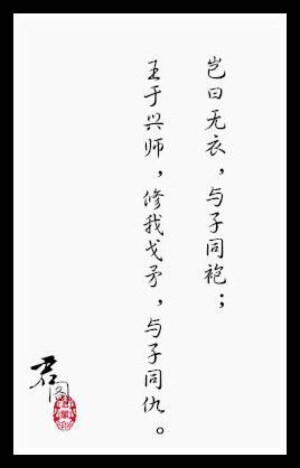 岂曰无衣，与子同袍；
王于兴师，修我戈矛，与子同仇。
君阁